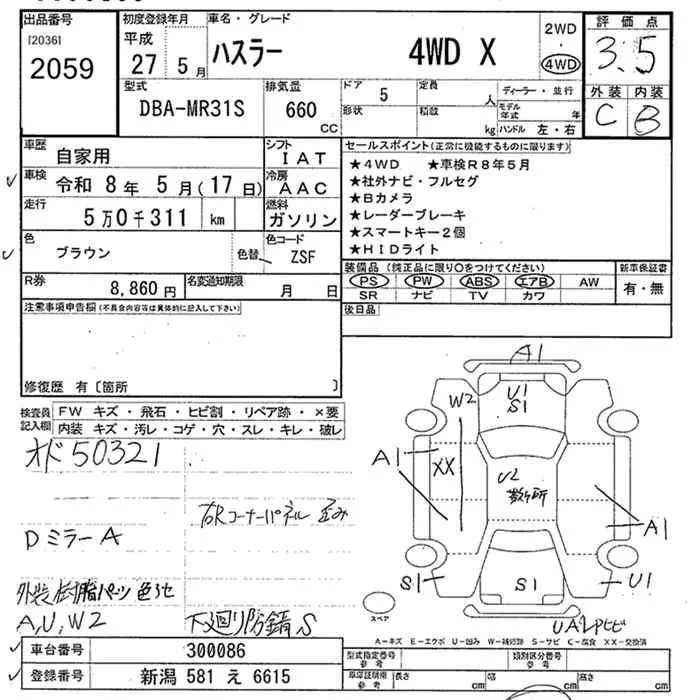 出品番号
[2036]
2059
初度登録年月
平成
27 5月
車名・グレード
ハスラー 4WD X
2WD
・
4WD
評価点
3.5
外装 内装
C B
型式
DBA-MR31S
排気量
660
CC
ドア
5
形状
定員
人
積載
kg
ディーラー・並行
モデル
年式 年
ハンドル 左・右
車歴
自家用
シフト
IAT
車検
令和 8年 5月(17日)
冷房
AAC
走行
5万0千311 km
燃料
ガソリン
色
ブラウン
色替
色コード
ZSF
R券
8,860円
名変通知期限
月 日
セールスポイント(正常に機能するものに限ります)
★4WD ★車検R8年5月
★社外ナビ・フルセグ
★Bカメラ
★レーダーブレーキ
★スマートキー2個
★HIDライト
装備品(純正品に限り○をつけてください)
PS PW ABS エアB AW
SR ナビ TV カワ
新車保証書
有・無
後日品
注意事項申告欄(不具合内容等は具体的に記入して下さい)
修復歴 有〔箇所 〕
検査員
記入欄
FW キズ・飛石・ヒビ割・リペア跡・×要
内装 キズ・汚レ・コゲ・穴・スレ・キレ・破レ
オド50321
右Rコーナーパネル 歪み
Dミラー A
外装樹脂パーツ 色あせ
A, U, W2
下廻り防錆 S
A1
W2
U1
S1
A1
XX
U2
数ヶ所
A1
S1
S1
U1
スペア
A-キズ E-エクボ U-凹み W-補修跡 S-サビ C-腐食 XX-交換済
車台番号
300086
登録番号
新潟 581 え 6615
型式指定番号
参考
類別区分番号
参考
車庫証明用
参考
長さ
cm
幅
cm
高さ
cm